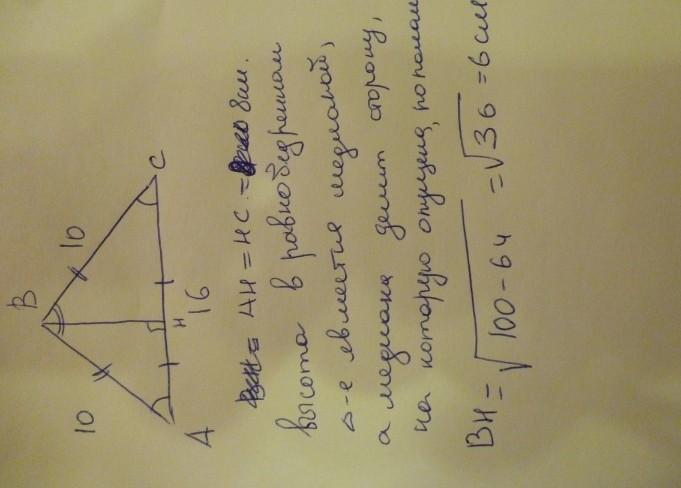 B
10
10
A
H
C
16
AH = HC = 8см.
высота в равнобедренном
Δ-е является медианой,
а медиана делит сторону,
на которую опущена, пополам
BH = √100-64 = √36 = 6 см